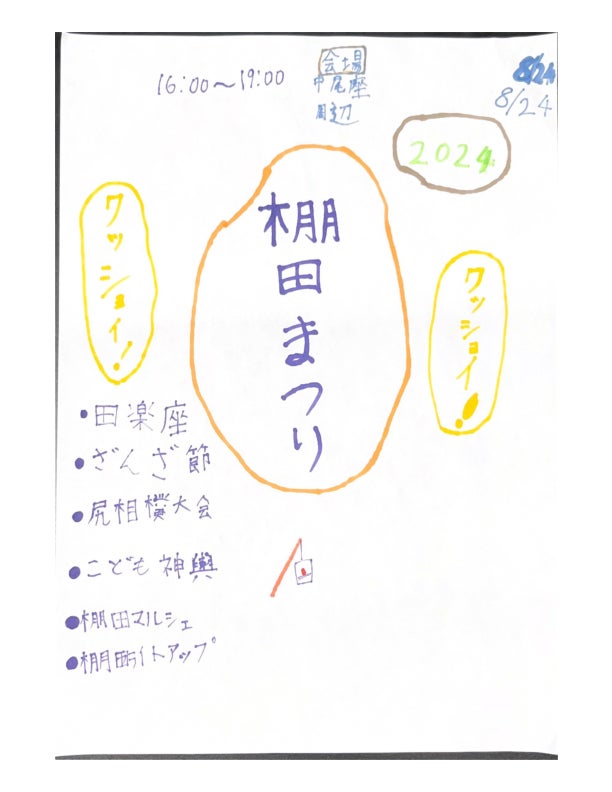 16:00〜19:00
会場
中尾座
周辺
8/24
8/24
2024
棚田まつり
ワッショイ!
ワッショイ!
・田楽座
・ざんざ節
・尻相撲大会
・こども神輿
・棚田マルシェ
・棚田ライトアップ